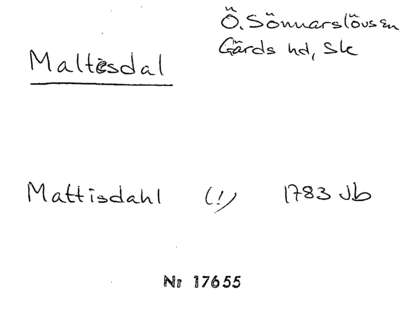 Maltesdal
Ö. Sönnarslövs sn
Gärds hd, Sk
Mattisdahl (!) 1783 Jb
Nr 17655